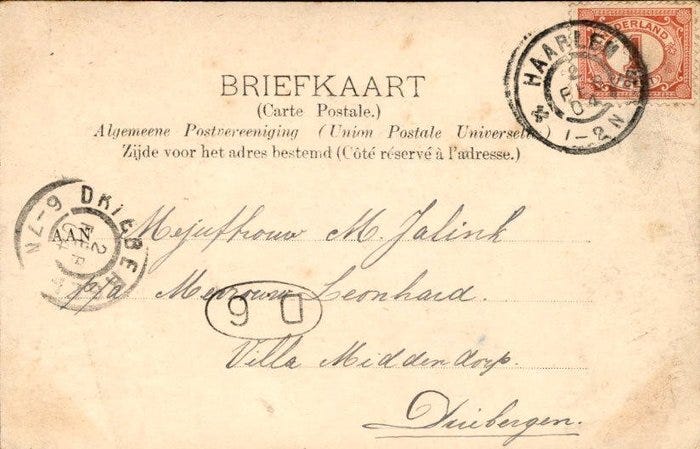 NEDERLAND
1
HAARLEM
FEB
04
1-2 N
BRIEFKAART
(Carte Postale.)
Algemeene Postvereeniging (Union Postale Universelle)
Zijde voor het adres bestemd (Côté réservé à l'adresse.)
DRIEBERGEN
2
FEB
6-7N
AAN
Mejufhouw M. Jalink
p/a Mevrouw Leonhard.
D 6
Villa Middendorp.
Driebergen.